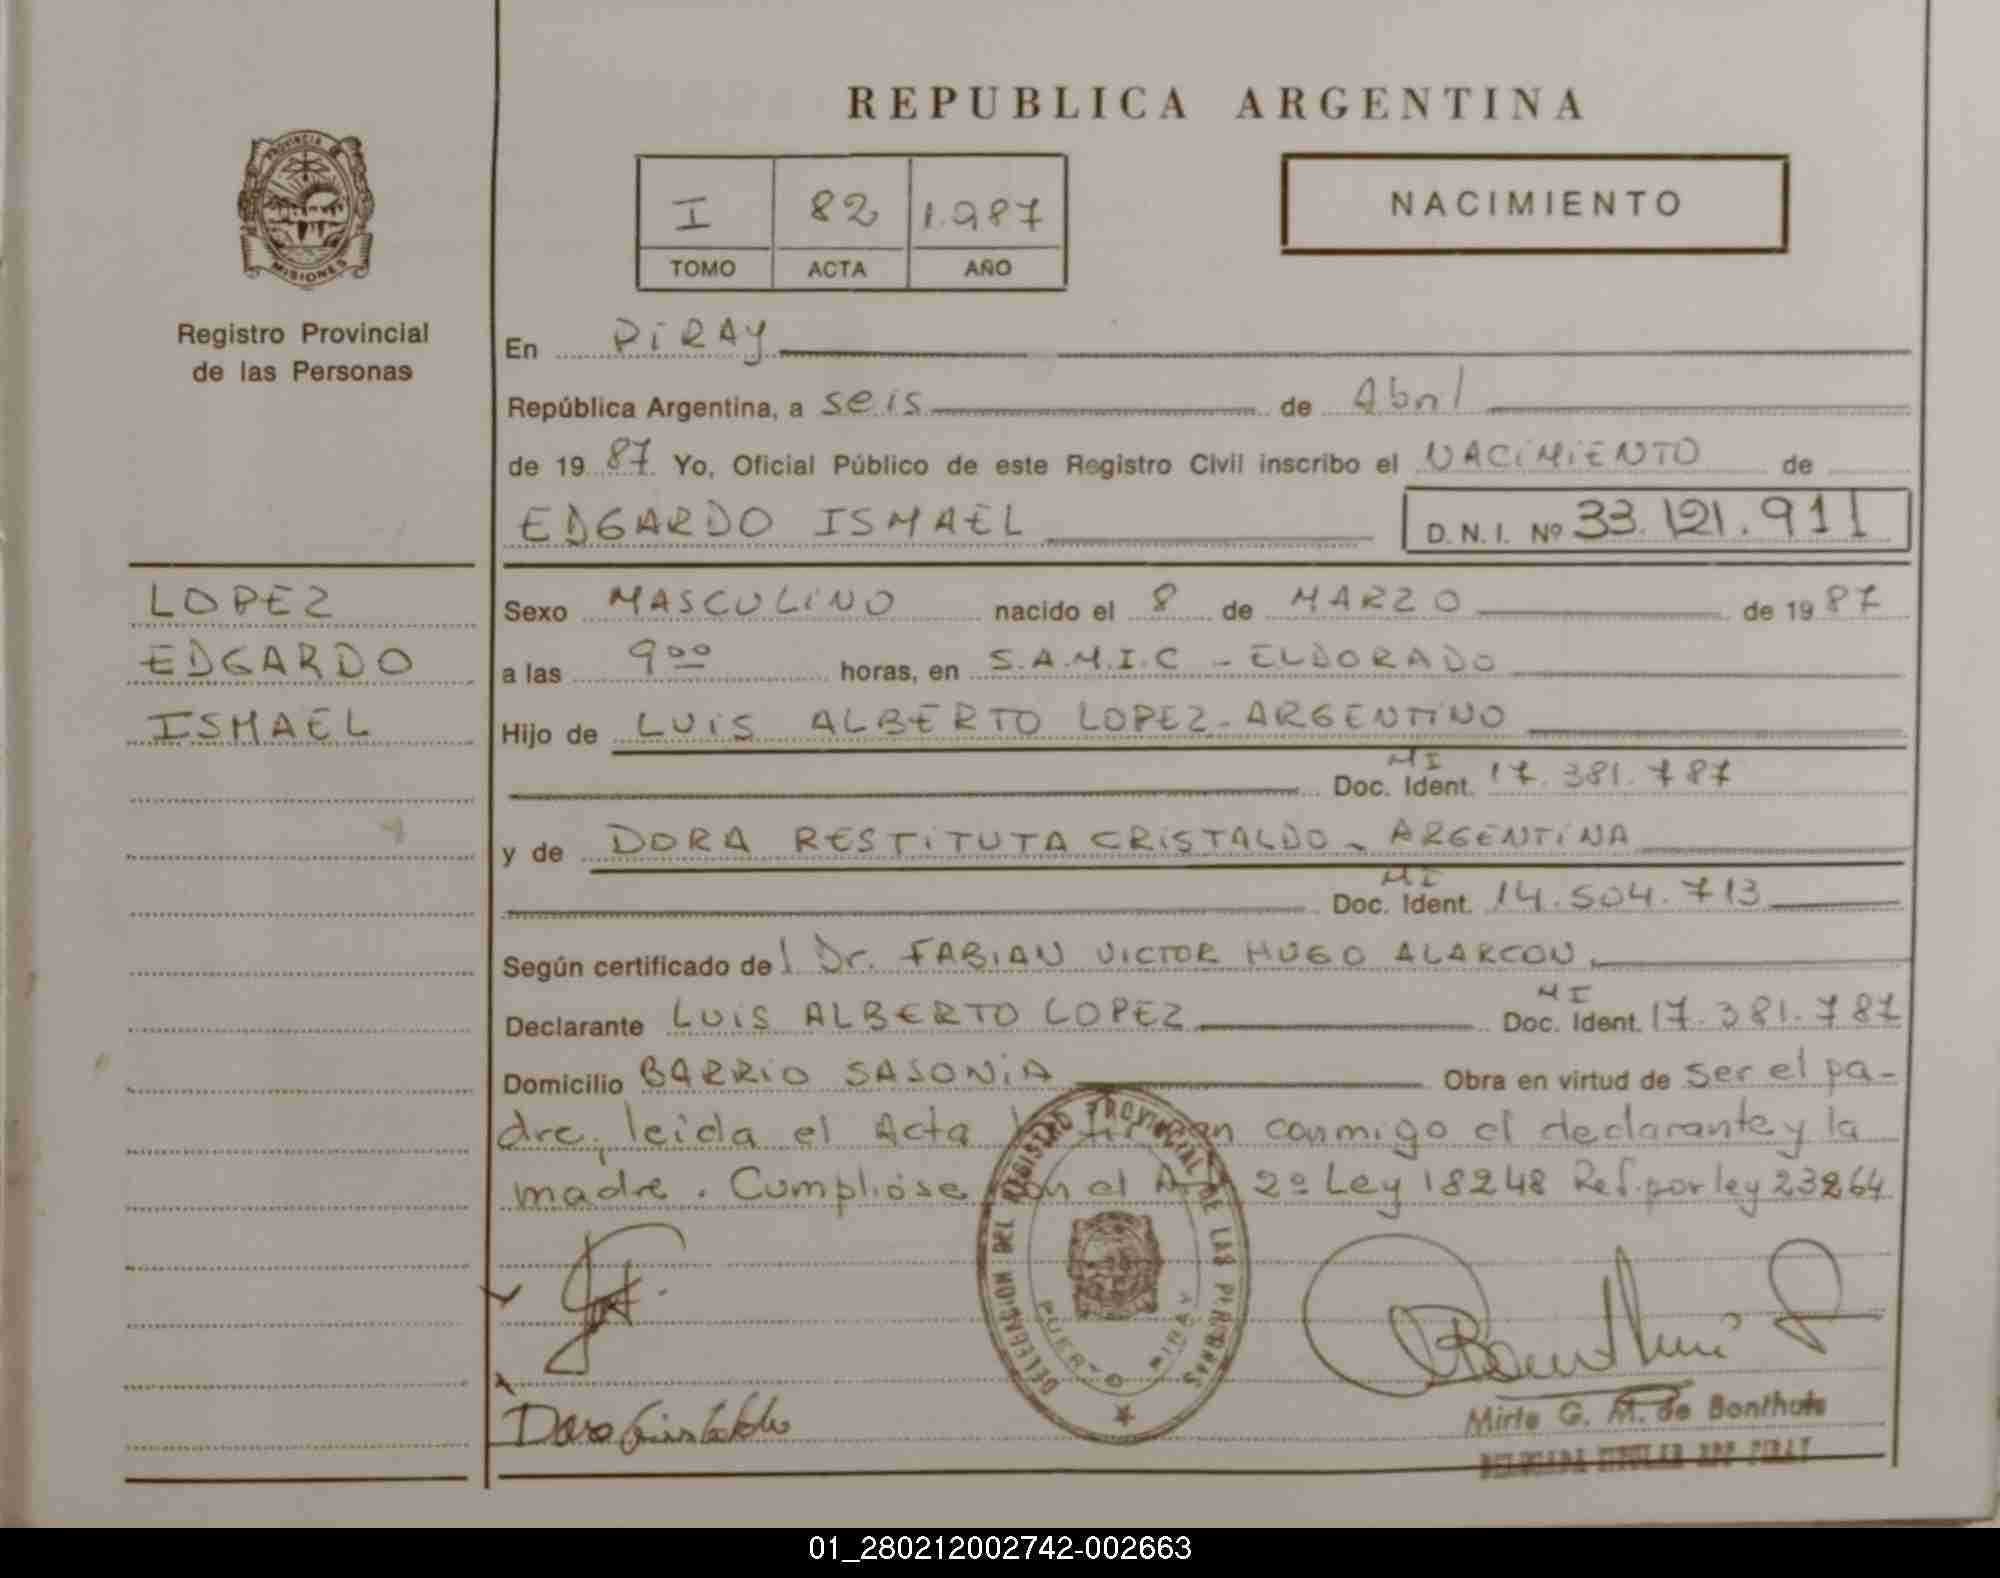 REPUBLICA ARGENTINA
PROVINCIA DE
MISIONES
I 82 1.987
TOMO ACTA AÑO
NACIMIENTO
Registro Provincial
de las Personas
En PIRAY
República Argentina, a seis de Abril
de 1987 Yo, Oficial Público de este Registro Civil inscribo el NACIMIENTO de
EDGARDO ISMAEL D.N.I. Nº 33.121.911
LOPEZ
EDGARDO
ISMAEL
Sexo MASCULINO nacido el 8 de MARZO de 1987
a las 9 00 horas, en S.A.M.I.C - ELDORADO
Hijo de LUIS ALBERTO LOPEZ - ARGENTINO
MI
Doc. Ident. 17.381.787
y de DORA RESTITUTA CRISTALDO - ARGENTINA
MI
Doc. Ident. 14.504.713
Según certificado del Dr. FABIAN VICTOR HUGO ALARCON.
MI
Declarante LUIS ALBERTO LOPEZ Doc. Ident. 17.381.787
Domicilio BARRIO SASONIA Obra en virtud de ser el pa-
dre, leida el Acta la firman conmigo el declarante y la
madre. Cumplióse con el Art 2º Ley 18248 Ref. por ley 23264
DELEGACION DEL REGISTRO PROVINCIAL DE LAS PERSONAS
PUERTO PIRAY
Dora Cristaldo
Mirta G. M. de Bonthuis
DELEGADA TITULAR RPP PIRAY
01_280212002742-002663